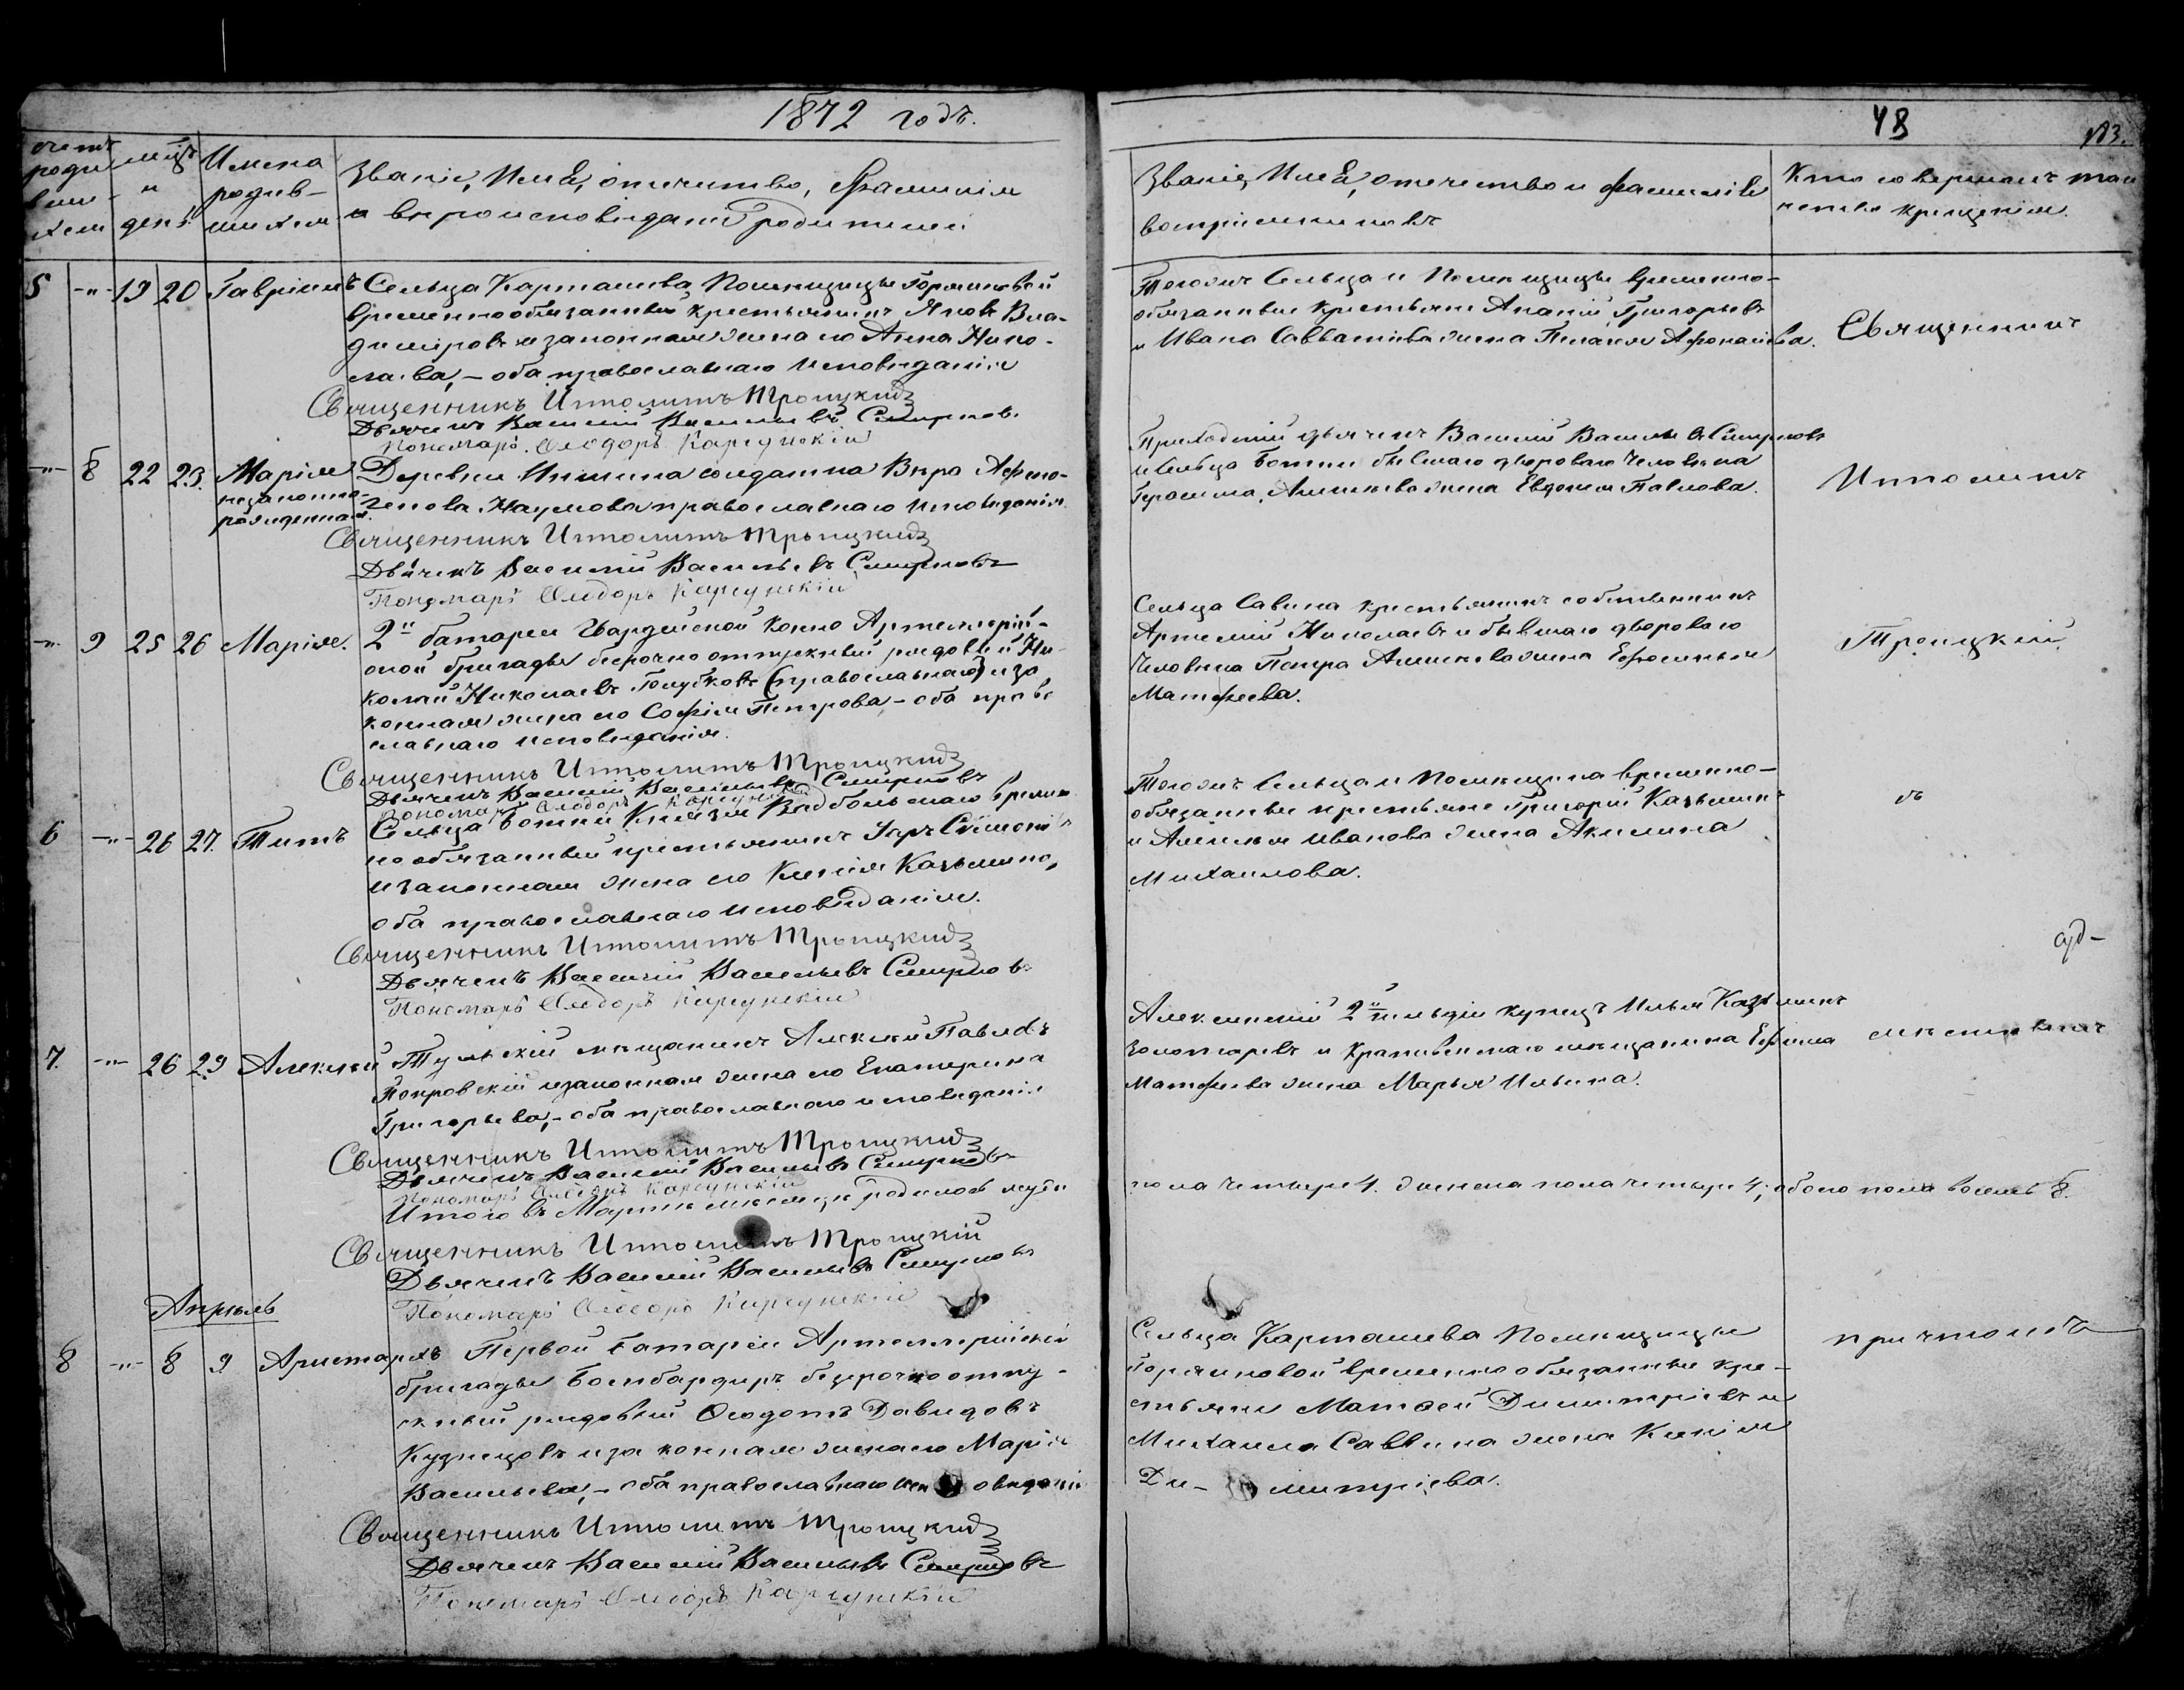 1872 годъ.
48
183.
счетъ роди вши хся
мцъ и день
Имена родив- шихся
Званіе, Имя, отечество, Фамилія
и вѣроисповѣданіе родителей
Званіе, Имя, отечество и фамилія
воспріемниковъ
Кто совершалъ таи
нство крещенія.
5 -"- 19 20 Гавріилъ
Сельца Карташева Помѣщицы Горяиновой
временнообязанный крестьянинъ Яковъ Вла-
диміровъ и законная жена его Анна Нико-
лаева, - оба православнаго исповѣданія
Священникъ Ипполитъ Троицкій
Дьячекъ Василій Васильевъ Смирновъ.
Пономарь Ѳеодоръ Карсунскій
Тогожъ Сельца и Помѣщицы временно-
обязанные крестьяне Ананій Григорьевъ
и Ивана Савватіева жена Пелагея Афонасьева.
Священникъ
-"- 8 22 23. Марія
незаконно-
рожденная.
Деревни Иншина солдатка Вѣра Афино-
генова Наумова православнаго исповѣданія
Священникъ Ипполитъ Троицкій
Дьячекъ Василій Васильевъ Смирновъ
Пономарь Ѳеодоръ Карсунскій
Приходскій дьячекъ Василій Васильевъ Смирновъ
и Сельца Ботни бывшаго двороваго человѣка
Герасима Алексѣева жена Евдокія Павлова.
Ипполитъ
-"- 9 25 26 Марія.
2й батареи Гвардейской Конно Артиллерій-
ской бригады безсрочно отпускный рядовый Ни-
колай Николаевъ Голубковъ (православнаго) и за
конная жена его Софія Петрова - оба право
славнаго исповѣданія.
Священникъ Ипполитъ Троицкій
Дьячекъ Василій Васильевъ Смирновъ
Пономарь Ѳеодоръ Карсунскій
Сельца Савина крестьянинъ собственникъ
Артемій Николаевъ и бывшаго двороваго
человѣка Петра Алексѣева жена Ефросинья
Матфеева.
Троицкій
6 -"- 26 27. Титъ
Сельца Ботни Князя Вадбольскаго времен
но обязанный крестьянинъ Симоновъ
и законная жена его Ксенія Казьмина,
оба православнаго исповѣданія.
Священникъ Ипполитъ Троицкій
Дьячекъ Василій Васильевъ Смирновъ
Пономарь Ѳеодоръ Карсунскій
Тогожъ Сельца и Помѣщика временно-
обязанные крестьяне Григорій Казьминъ
и Алексѣя Иванова жена Акилина
Михаилова.
съ
7. -"- 26 29 Алексѣй
Тульскій мѣщанинъ Алексѣй Павловъ
Покровскій и законная жена его Екатерина
Григорьева, - оба православнаго исповѣданія
Священникъ Ипполитъ Троицкій
Дьячекъ Василій Васильевъ Смирновъ
Пономарь Ѳеодоръ Карсунскій
Алексинскій 2й гильдіи купецъ Илья Казьминъ
Золотаревъ и Крапивенскаго мѣщанина Ефима
Матфеева жена Марья Ильина.
мѣстнымъ
Итого въ Мартѣ мѣсяцѣ родилось муже
пола четыре 4. Женска пола четыре 4; обоего пола восемь 8.
Священникъ Ипполитъ Троицкій
Дьячекъ Василій Васильевъ Смирновъ
Пономарь Ѳеодоръ Карсунскій
Апрѣль
8 -"- 8 9 Аристархъ
Первой батареи Артиллерійской
бригады Бомбардиръ безсрочно отпу-
скный рядовый Ѳеодотъ Давидовъ
Кузнецовъ и законная жена его Марія
Васильева, - оба православнаго исповѣданія
Священникъ Ипполитъ Троицкій
Дьячекъ Василій Васильевъ Смирновъ
Пономарь Ѳеодоръ Карсунскій
Сельца Карташева Помѣщицы
Горяиновой временно обязанные кре-
стьяне Матвей Димитріевъ и
Михаила Саввина жена Ксенія
Ди- митріева.
причтомъ